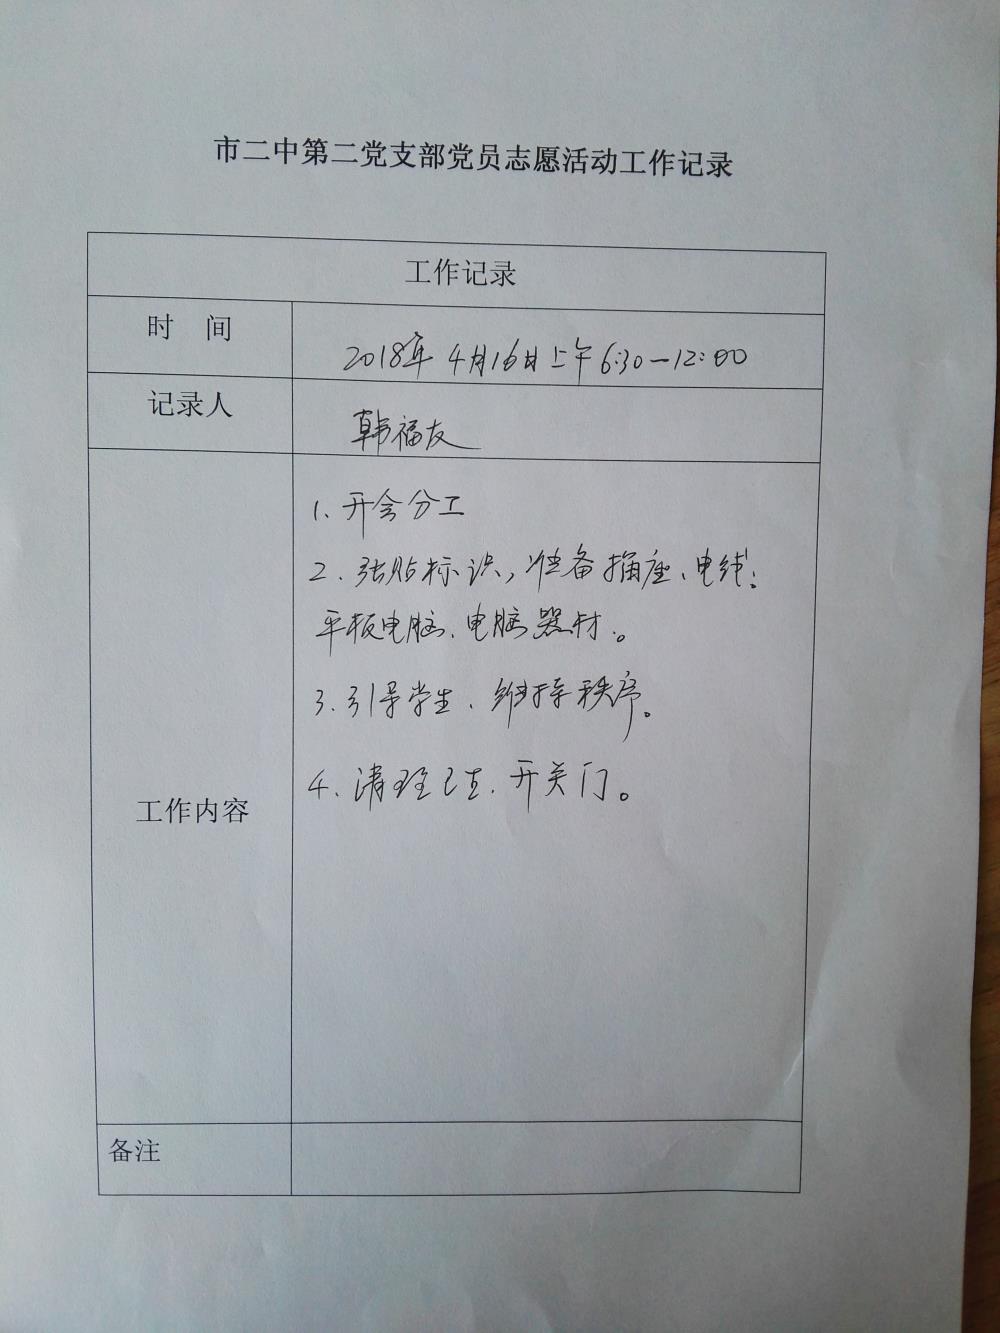 市二中第二党支部党员志愿活动工作记录
工作记录
时 间
2018年4月16日上午6:30—12:00
记录人
韩福友
1、开会分工
2、张贴标识,准备插座、电线、
平板电脑、电脑器材。
3、引导学生、维持秩序。
4、清理卫生、开关门。
工作内容
备注